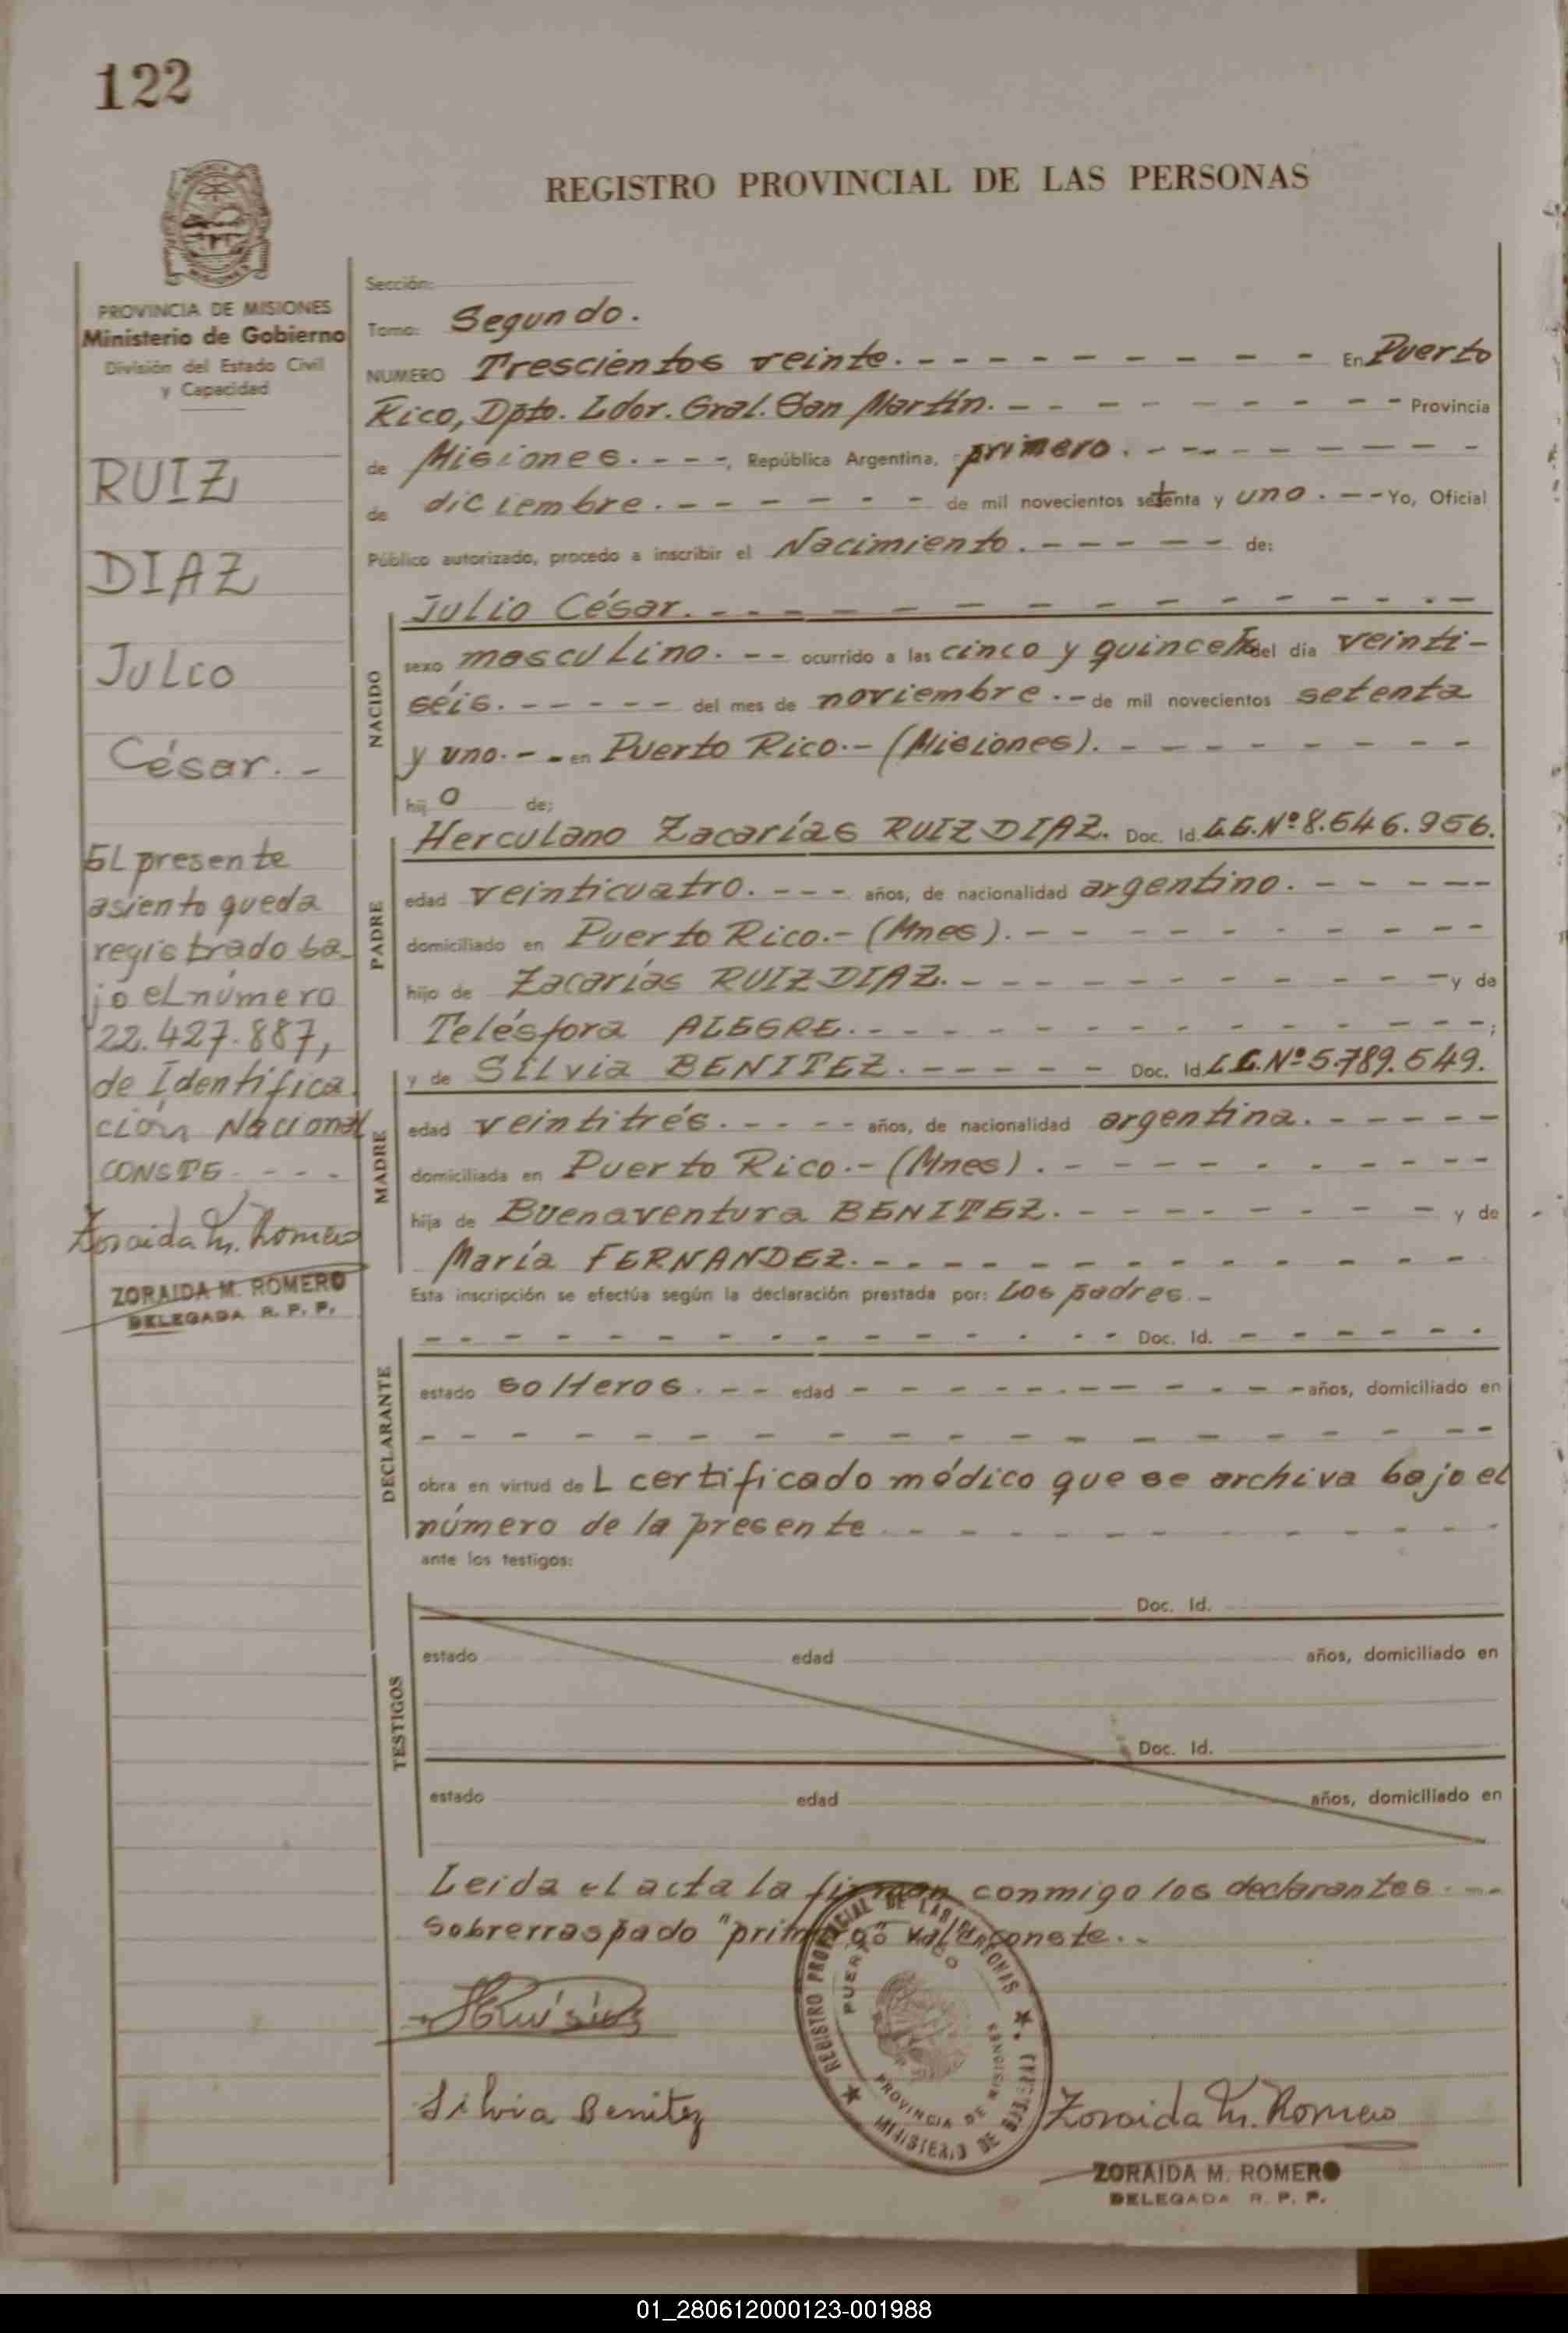 122
REGISTRO PROVINCIAL DE LAS PERSONAS
PROVINCIA DE MISIONES
Ministerio de Gobierno
División del Estado Civil
y Capacidad
RUIZ
DIAZ
Julio
César. -
El presente
asiento queda
registrado ba-
jo el número
22.427.887,
de Identifica
ción Nacional
CONSTE - - -
Zoraida M. Romero
ZORAIDA M. ROMERO
DELEGADA R. P. P.
Sección:
Tomo: Segundo.
NUMERO Trescientos veinte. - - - - - - - - - En Puerto
Rico, Dpto. Ldor. Gral. San Martín. - - - - - - - - - Provincia
de Misiones. - - - -, República Argentina, primero. - - - - - - - -
de diciembre. - - - - - - - de mil novecientos setenta y uno. - - Yo, Oficial
Público autorizado, procedo a inscribir el Nacimiento. - - - - - - de:
NACIDO
Julio César. - - - - - - - - - - - - - - -
sexo masculino. - - ocurrido a las cinco y quince del día veinti-
séis. - - - - - del mes de noviembre. - de mil novecientos setenta
y uno. - - en Puerto Rico. - (Misiones). - - - - - - - - -
hij o de:
PADRE
Herculano Zacarías RUIZ DIAZ. Doc. Id. L.E. Nº 8.546.956.
edad veinticuatro. - - - años, de nacionalidad argentino. - - - - -
domiciliado en Puerto Rico. - (Mnes). - - - - - - - - - -
hijo de Zacarías RUIZ DIAZ. - - - - - - - - - - y de
Telésfora ALEGRE. - - - - - - - - - - - - - ;
MADRE
y de Silvia BENITEZ. - - - - - Doc. Id. L.C. Nº 5.789.549.
edad veintitrés. - - - - años, de nacionalidad argentina. - - - - -
domiciliada en Puerto Rico. - (Mnes). - - - - - - - - - -
hija de Buenaventura BENITEZ. - - - - - - - - y de
María FERNANDEZ. - - - - - - - - - - - -
Esta inscripción se efectúa según la declaración prestada por: Los padres. -
DECLARANTE
- - - - - - - - - - - - - - - Doc. Id. - - - - - -
estado solteros. - - - edad - - - - - - - - - - años, domiciliado en
- - - - - - - - - - - - - - - - - -
obra en virtud de L certificado médico que se archiva bajo el
número de la presente - - - - - - - - - - -
ante los testigos:
TESTIGOS
Doc. Id.
estado edad años, domiciliado en
Doc. Id.
estado edad años, domiciliado en
Leida el acta la firman conmigo los declarantes. - -
Sobrerraspado "primero" vale conste. -
Silvia Benitez
REGISTRO PROVINCIAL DE LAS PERSONAS
PUERTO RICO
PROVINCIA DE MISIONES
MINISTERIO DE
Zoraida M. Romero
ZORAIDA M. ROMERO
DELEGADA R. P. P.
01_280612000123-001988